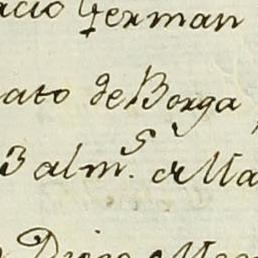 acio German
ato de Borga
3 alm.s Ma
Diogo Me